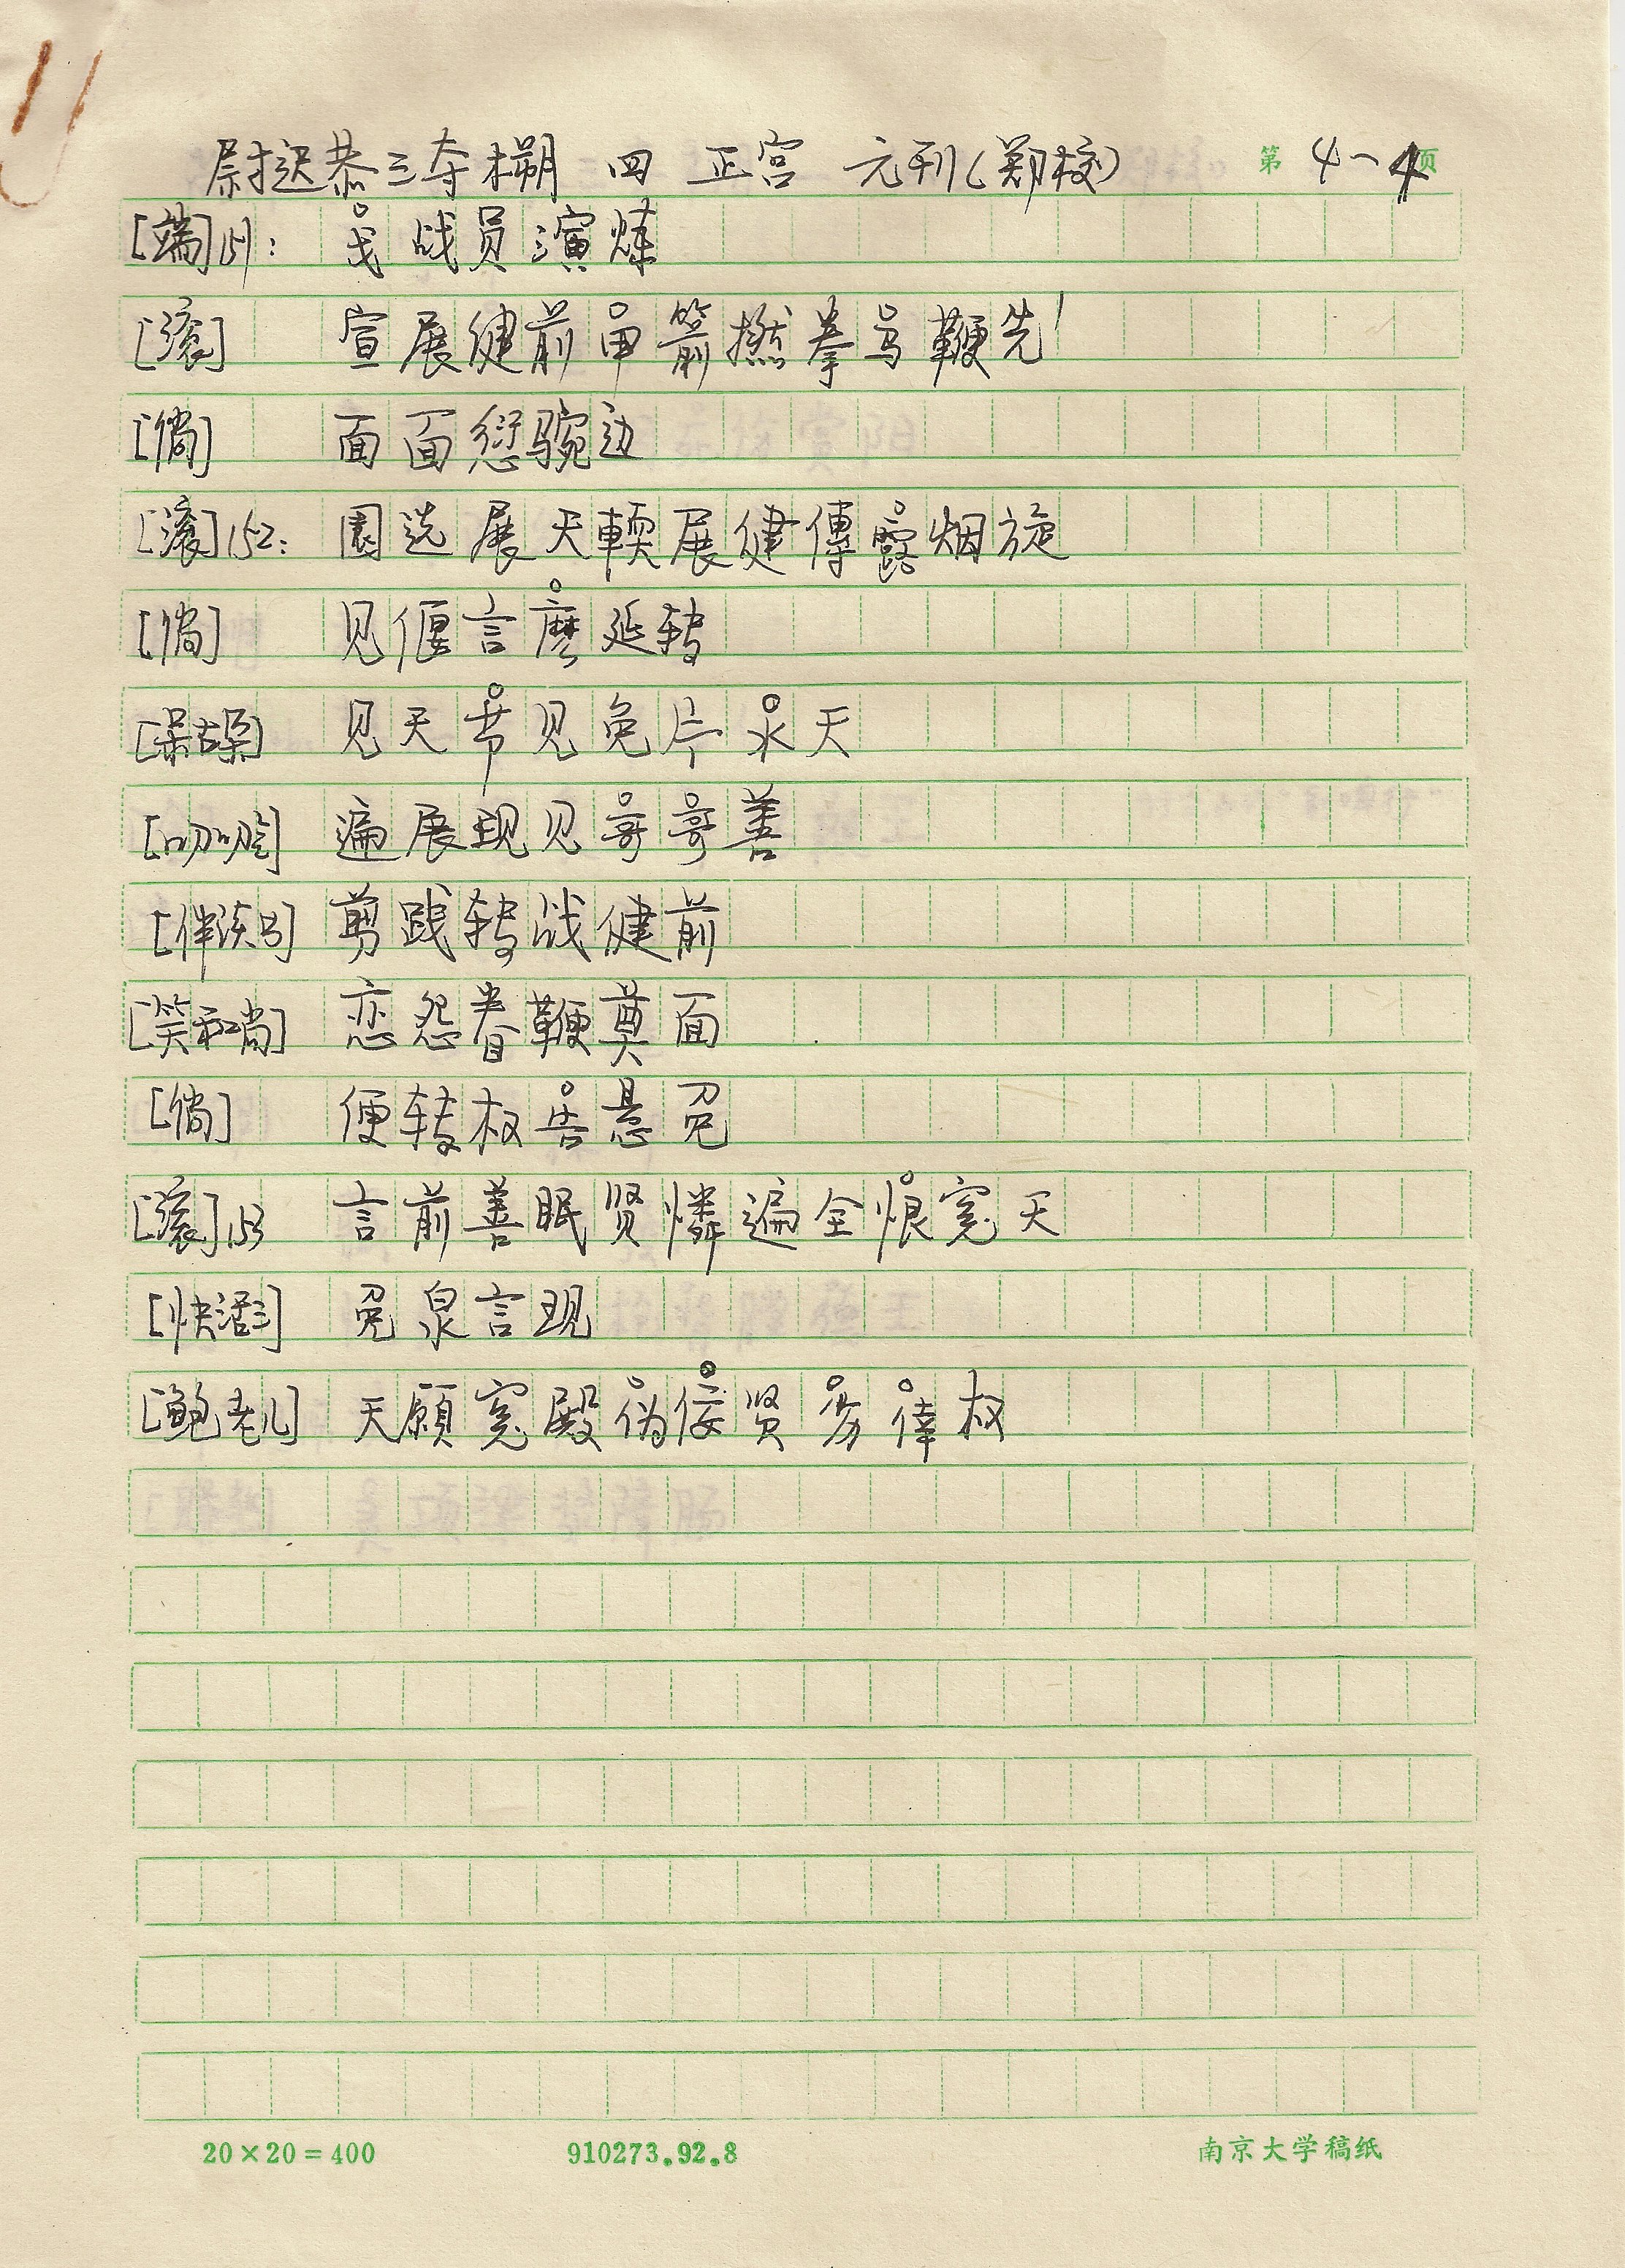 尉迟恭三夺槊 四 正宫 元刊(郑校) 第 4-4 页
[端]151: 戈战员演炼
[滚] 宣展健前申箭撚拳马鞭先
[倘] 面面愆骑边
[滚]152: 園选展天輭展健傳露烟旋
[倘] 见偃言麽延转
[呆古朵] 见天节见免片永天
[叨叨令] 遍展现见哥哥善
[伴读书] 剪践转战健前
[笑和尚] 恋怨眷鞭奠面
[倘] 便转权告悬免
[滚]153 言前善眠贤憐遍全恨冤天
[快活三] 冤泉言现
[鲍老儿] 天願冤殿伪佞贤劣倖权
20×20=400 910273.92.8 南京大学稿纸